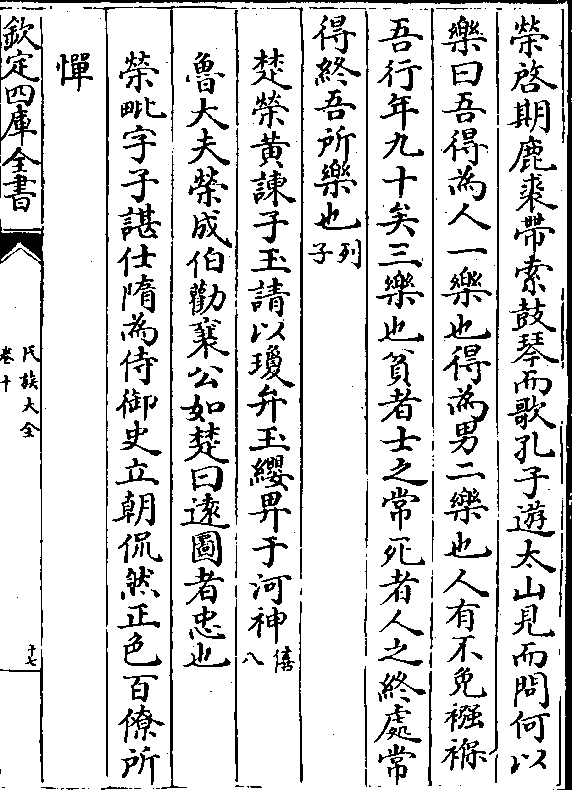 榮啓期鹿裘帶索鼓琴而歌孔子遊太山見而問何以
樂曰吾得為人一樂也得為男二樂也人有不免襁褓
吾行年九十矣三樂也貧者士之常死者人之終處常
得終吾所樂也列子
楚榮黄諫子玉請以瓊弁玉纓畀于河神僖八
魯大夫榮成伯勸襄公如楚曰逺圖者忠也
榮毗字子諶仕隋為侍御史立朝侃然正色百僚所
憚
欽定四庫全書
氏族大全
卷十
十七